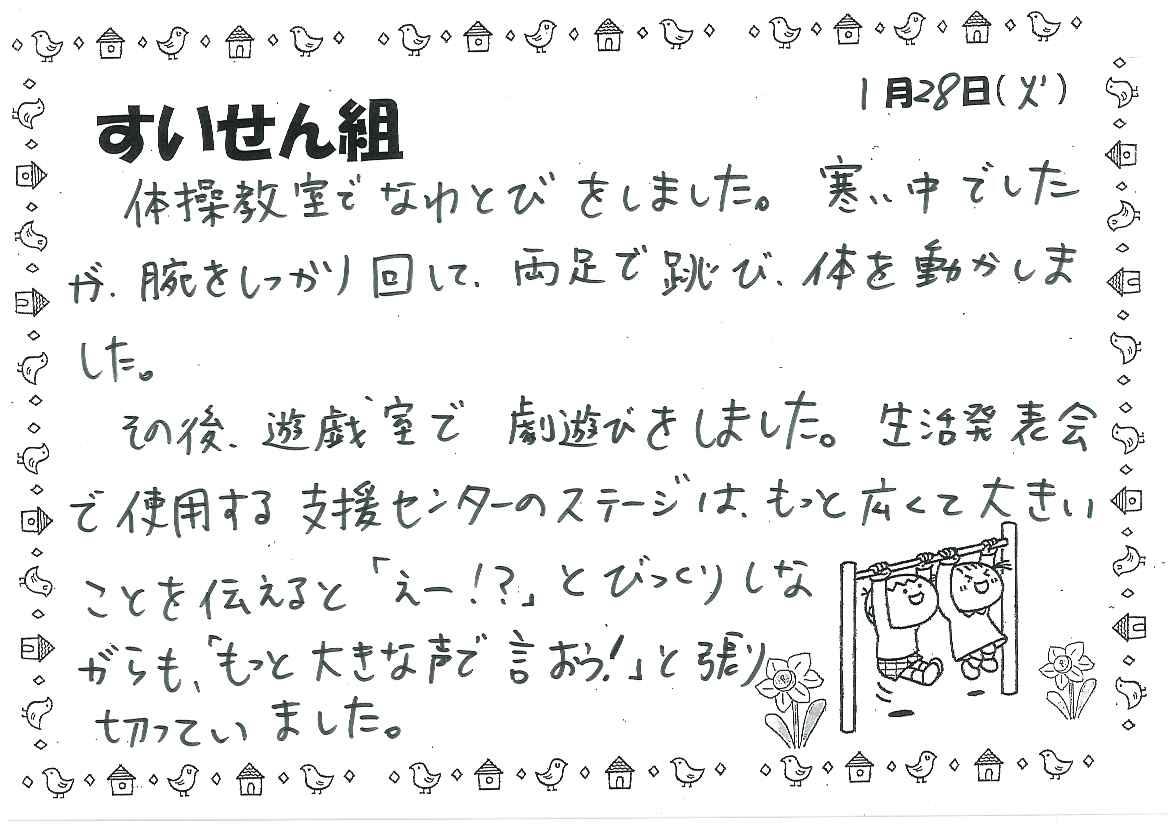 1月28日(火)
すいせん組
体操教室でなわとびをしました。寒い中でした
が、腕をしっかり回して、両足で跳び、体を動かしま
した。
その後、遊戯室で劇遊びをしました。生活発表会
で使用する支援センターのステージは、もっと広くて大きい
ことを伝えると「えー!?」とびっくりしな
がらも、「もっと大きな声で言おう!」と張り
切っていました。